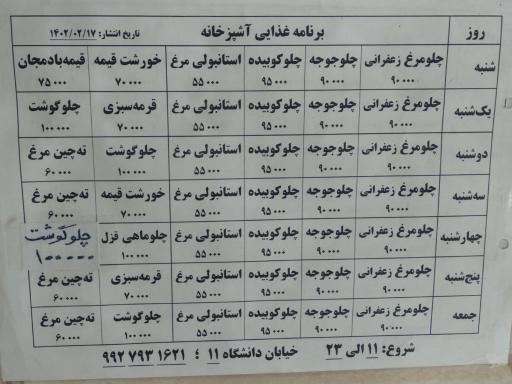 روز برنامه غذایی آشپزخانه تاریخ انتشار: ۱۴۰۲/۰۲/۱۷
شنبه چلومرغ زعفرانی چلوجوجه چلوکوبیده استانبولی مرغ خورشت قیمه قیمه‌بادمجان
۹۰۰۰۰ ۹۰۰۰۰ ۹۵۰۰۰ ۵۵۰۰۰ ۷۰۰۰۰ ۷۵۰۰۰
یک‌شنبه چلومرغ زعفرانی چلوجوجه چلوکوبیده استانبولی مرغ قرمه‌سبزی چلوگوشت
۹۰۰۰۰ ۹۰۰۰۰ ۹۵۰۰۰ ۵۵۰۰۰ ۷۰۰۰۰ ۱۰۰۰۰۰
دوشنبه چلومرغ زعفرانی چلوجوجه چلوکوبیده استانبولی مرغ چلوگوشت ته‌چین مرغ
۹۰۰۰۰ ۹۰۰۰۰ ۹۵۰۰۰ ۵۵۰۰۰ ۱۰۰۰۰۰ ۶۰۰۰۰
سه‌شنبه چلومرغ زعفرانی چلوجوجه چلوکوبیده استانبولی مرغ خورشت قیمه ته‌چین مرغ
۹۰۰۰۰ ۹۰۰۰۰ ۹۵۰۰۰ ۵۵۰۰۰ ۷۰۰۰۰ ۶۰۰۰۰
چهارشنبه چلومرغ زعفرانی چلوجوجه چلوکوبیده استانبولی مرغ چلوماهی قزل چلوگوشت
۹۰۰۰۰ ۹۰۰۰۰ ۹۵۰۰۰ ۵۵۰۰۰ ۱۰۰۰۰۰ ۱۰۰۰۰۰
پنج‌شنبه چلومرغ زعفرانی چلوجوجه چلوکوبیده استانبولی مرغ قرمه‌سبزی ته‌چین مرغ
۹۰۰۰۰ ۹۰۰۰۰ ۹۵۰۰۰ ۵۵۰۰۰ ۷۰۰۰۰ ۶۰۰۰۰
جمعه چلومرغ زعفرانی چلوجوجه چلوکوبیده استانبولی مرغ چلوگوشت ته‌چین مرغ
۹۰۰۰۰ ۹۰۰۰۰ ۹۵۰۰۰ ۵۵۰۰۰ ۱۰۰۰۰۰ ۶۰۰۰۰
شروع: ۱۱ الی ۲۳ خیابان دانشگاه ۱۱ ؛ ۹۹۲ ۷۹۳ ۱۶۲۱